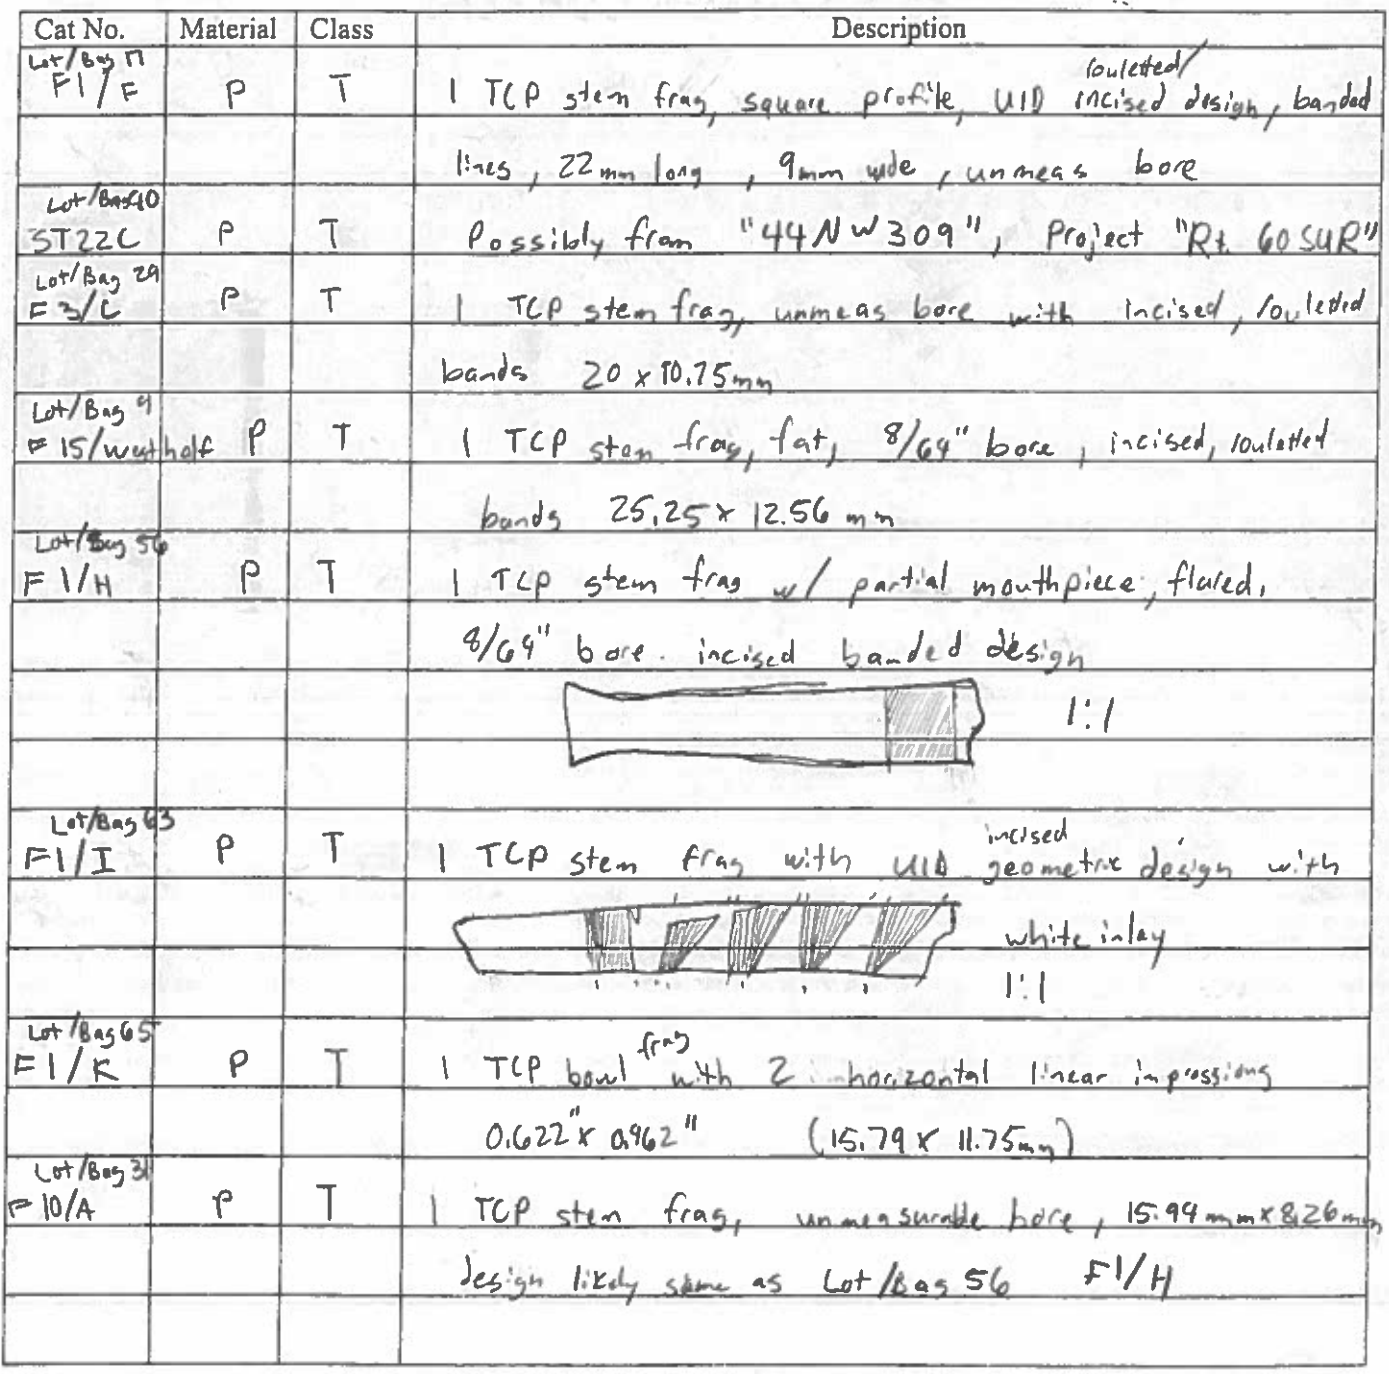 Cat No. Material Class Description
Lot/Bag 17
rouletted/
F1/F P T 1 TCP stem frag, square profile, UID incised design, banded
lines, 22mm long, 9mm wide, unmeas bore
Lot/Bag 40
ST22C P T Possibly from "44NW309", Project "Rt. 60 SUR"
Lot/Bag 29
F3/C P T 1 TCP stem frag, unmeas bore with incised, rouletted
bands 20 x 10.75mm
Lot/Bag 9
F 15/west half P T 1 TCP stem frag, fat, 8/64" bore, incised, rouletted
bands 25.25 x 12.56 mm
Lot/Bag 56
F 1/H P T 1 TCP stem frag w/ partial mouthpiece, flared,
8/64" bore. incised banded design
1:1
Lot/Bag 63
incised
F1/I P T 1 TCP stem frag with UID geometric design with
white inlay
1:1
Lot/Bag 65
frag
F1/K P T 1 TCP bowl with 2 horizontal linear impressions
0.622" x 0.462" (15.79 x 11.75mm)
Lot/Bag 31
F 10/A P T 1 TCP stem frag, unmeasurable bore, 15.94mm x 8.26mm
design likely same as Lot/Bag 56 F1/H